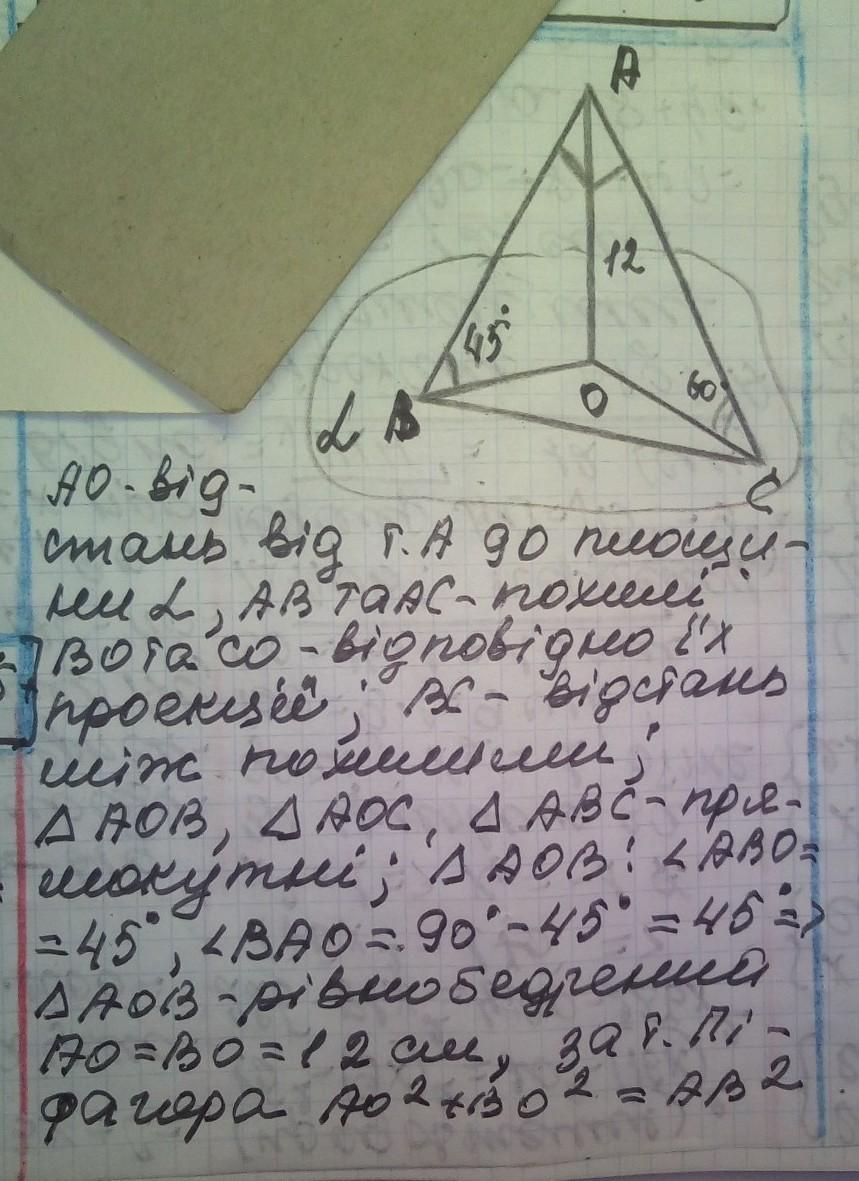 A
12
45°
60
O
L B
C
AO-від-
стань від т.А до площи-
ни L, AB та AC-похилі
BO та CO-відповідно їх
проекції; BC- відстань
між похилими;
Δ AOB, Δ AOC, Δ ABC-пря-
мокутні; Δ AOB: ∠ABO=
=45°, ∠BAO = 90°-45° = 45°=>
Δ AOB-рівнобедрений
AO=BO=12 см, за т. Пі-
фагора AO²+BO² = AB²